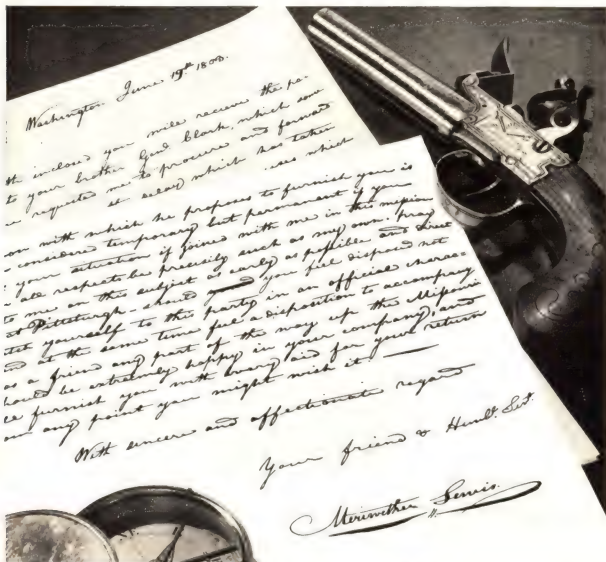 Washington June 19th 1803.
th inclosed you will receive the pa-
to your brother Genl. Clark, which some
requested me to procure and forward
delay which has taken
which
on with which he proposes to furnish you is
considered temporary but permanent if you
your situation if joined with me in this mission
all respects be precisely such as my own. Pray
to me on this subject as early as possible and direct
at Pittsburgh - should you feel disposed not
yourself to this party in an official charac-
and at the same time feel a disposition to accompany
as a friend any part of the way up the Missouri
should be extremely happy in your company, and
furnish you with every aid for your return
any point you might wish it.
With sincere and affectionate regard
Your friend & Humbl. Sevt.
Meriwether Lewis.